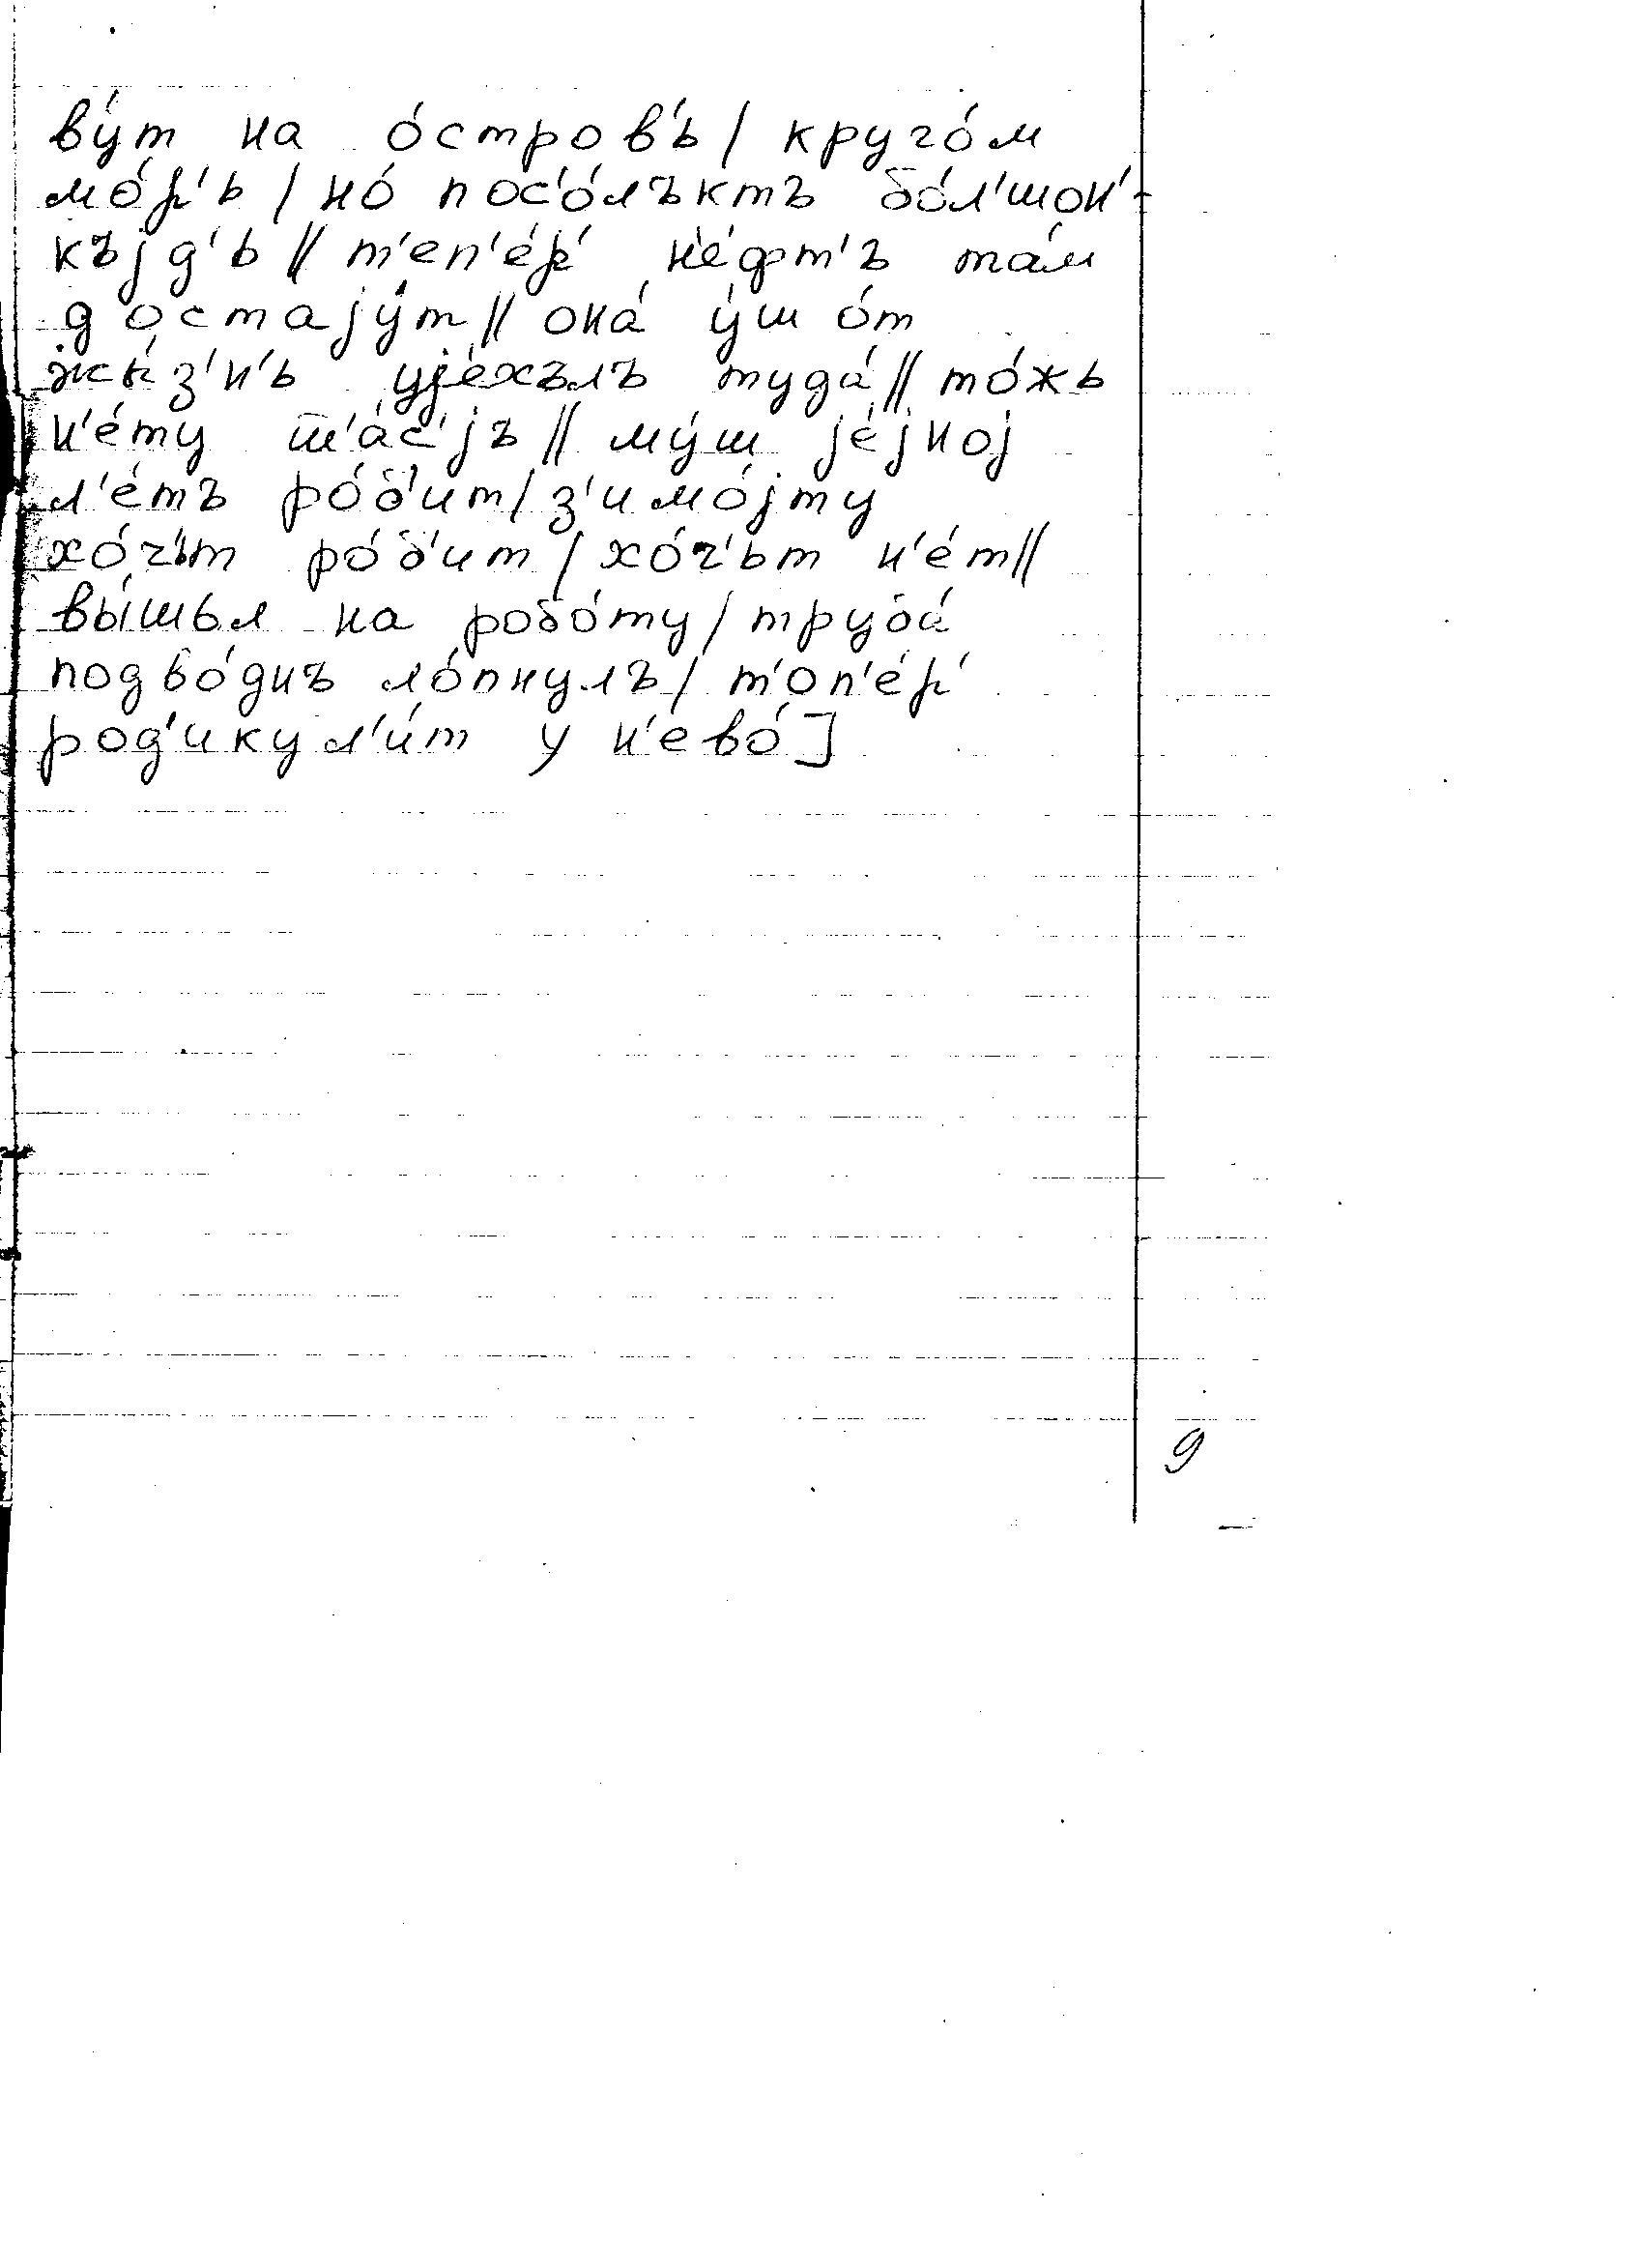 ву́т на о́стров'ь / круго́м
мо́р'ь / но́ пос'о́лъктъ бо́л'шон'-
къjд'ь // т'еп'е́р' н'е́фт'ъ та́м
достаjу́т // она́ у́ш о́т
жы́з'н'ь уjе́хълъ туда́ // то́жь
н'е́ту ш'а́с'jъ // му́ш jе́jноj
л'е́тъ ро́б'ит / з'имо́jту
хо́ч'ьт ро́б'ит / хо́ч'ьт н'е́т //
вы́шьл на робо́ту / труба́
подво́днъ ло́пнулъ / т'оп'е́р'
род'икул'и́т у н'ево́]
9